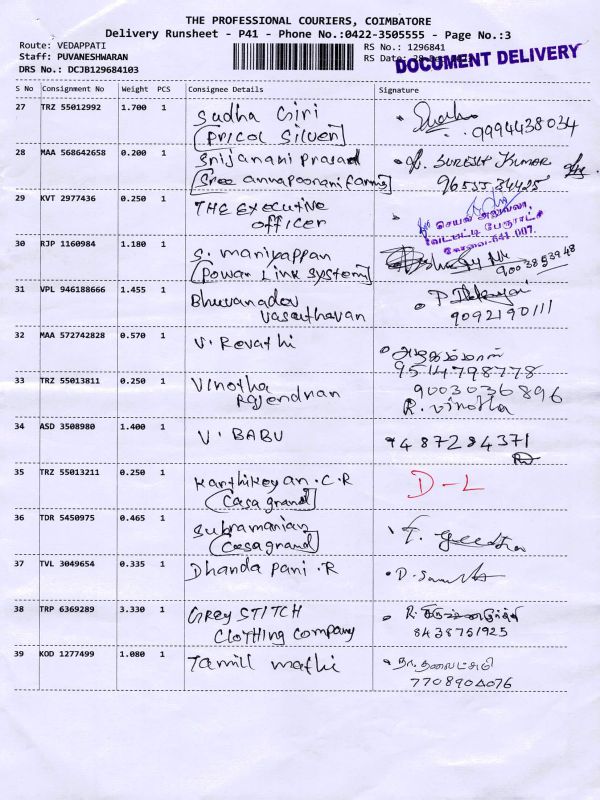 THE PROFESSIONAL COURIERS, COIMBATORE
Delivery Runsheet - P41 - Phone No.:0422-3505555 - Page No.:3
Route: VEDAPPATI
RS No.: 1296841
Staff: PUVANESHWARAN
RS Date:
DOCUMENT DELIVERY
DRS No.: DCJB129684103
S No Consignment No Weight PCS Consignee Details Signature
27 TRZ 55012992 1.700 1 Sudha Giri
(Pricol Silver)
9994438034
28 MAA 568642658 0.200 1 Srijanani Prasad
(Sree annapoorani farms)
SURESH KUMAR
29 KVT 2977436 0.250 1 THE EXECUTIVE
OFFICER
செயல் அலுவலர்
வேடபட்டி பேரூராட்சி
கோவை-641 007.
30 RJP 1160984 1.180 1 S. Maniyappan
(Powar Link System)
9003853948
31 VPL 946188666 1.455 1 Bhuvanadev
Vasanthavan
9092190111
32 MAA 572742828 0.570 1 V. Revathi
9514798778
33 TRZ 55013811 0.250 1 Vinotha
Rajendran
9003036896
R. Vinotha
34 ASD 3508980 1.400 1 V. BABU
9487284371
35 TRZ 55013211 0.250 1 Karthikeyan . C . R
(Casa grand)
D-L
36 TDR 5450975 0.465 1 Subramanian
(Casa grand)
37 TVL 3049654 0.335 1 Dhanda Pani . R
38 TRP 6369289 3.330 1 GREY STITCH
Clothing Company
8438751925
39 KOD 1277499 1.080 1 Tamil mathi
7708904076